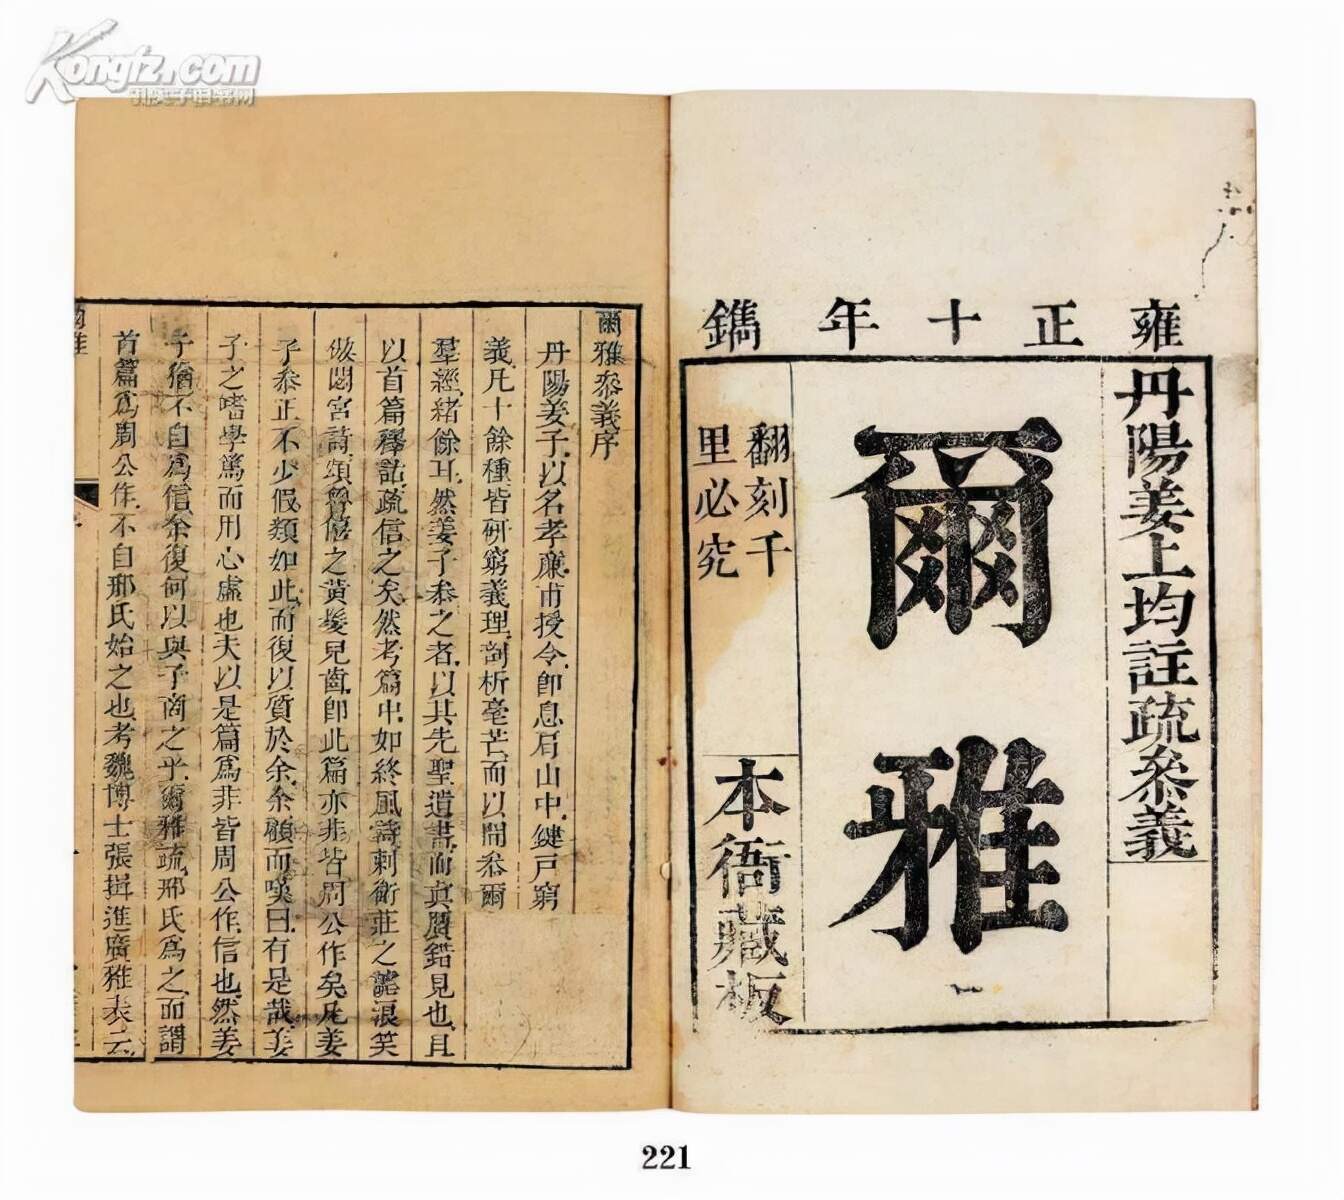 Kongfz.com
孔夫子旧书网
雍正十年鐫
丹陽姜上均註疏叅義
爾雅
翻刻千
里必究
本衙藏板
爾雅叅義序
丹陽姜子以名孝廉甫授令卽息肩山中鍵戸窮
義凡十餘種皆硏窮義理剖析毫芒而以閒叅爾
羣經緒餘耳然姜子叅之者以其先聖遺書而真贋錯見也且
以首篇釋詁疏信之矣然考篇中如終風詩刺衛莊之謔浪笑
敖閟宮詩頌魯僖之黃髮兒齒卽此篇亦非皆周公作矣凡姜
子叅正不少假類如此而復以質於余余顧而嘆曰有是哉姜
子之嗜學篤而用心虛也夫以是篇爲非皆周公作信也然姜
子猶不自爲信余復何以與子商之乎爾雅疏邢氏爲之而謂
首篇爲周公作不自邢氏始之也考魏博士張揖進廣雅表云
221